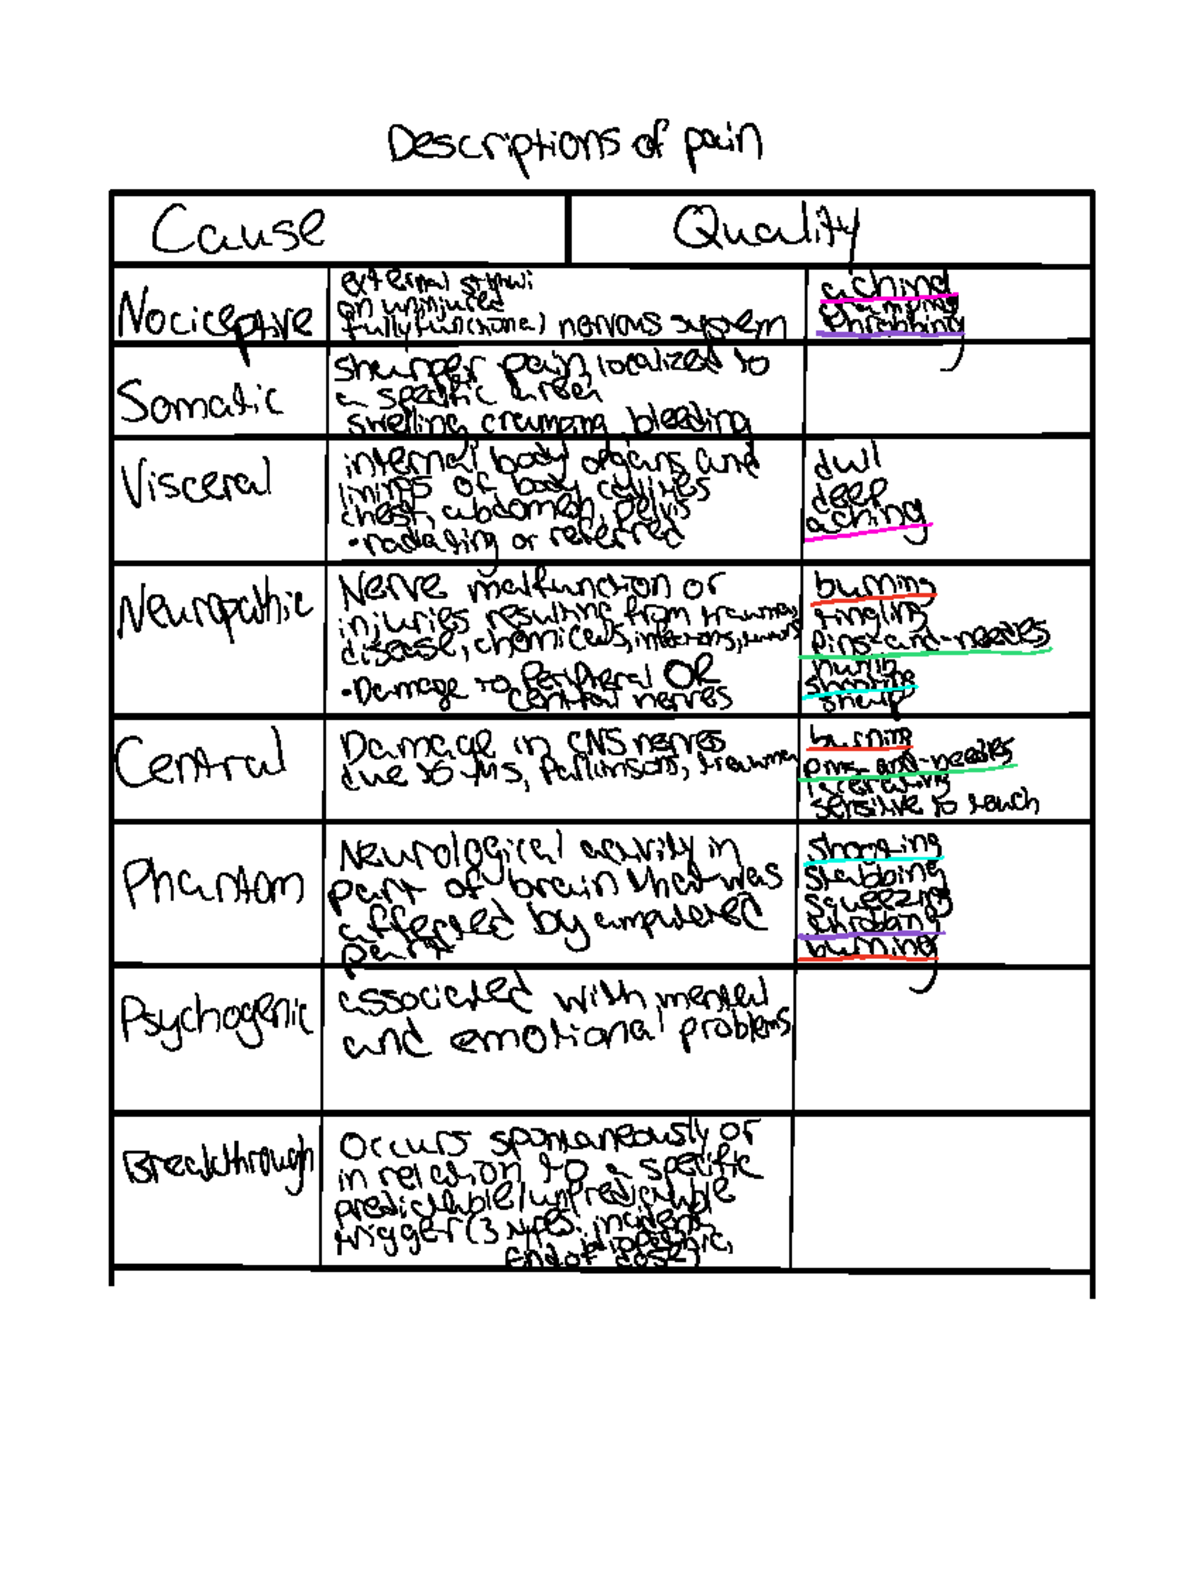 Descriptions of pain
Cause
Quality
Nociceptive
external stimuli
on uninjured
fully functional nervous system
aching
cramping
throbbing
Somatic
sharper pain, localized to
a specific area
swelling, cramping, bleeding
Visceral
internal body organs and
linings of body cavities
chest, abdomen, pelvis
•radiating or referred
dull
deep
aching
Neuropathic
Nerve malfunction or
injuries resulting from trauma,
disease, chemicals, infections,
•Damage to Peripheral OR
central nerves
burning
tingling
pins-and-needles
numb
shooting
sharp
Central
Damage in CNS nerves
due to MS, Parkinsons, trauma
burning
pins-and-needles
sensitive to touch
Phantom
Neurological activity in
part of brain that was
affected by amputated
part
shooting
stabbing
squeezing
throbbing
burning
Psychogenic
associated with mental
and emotional problems
Breakthrough
Occurs spontaneously or
in relation to a specific
predictable/unpredictable
trigger (3 types: incident,
idiopathic,
End of dose)